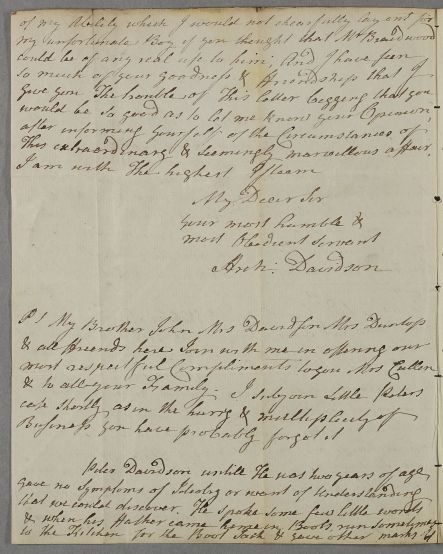 of my Ability which I would not chearfully lay out for
my unfortunate Boy if you thought that Mr Braidwood
could be of any real use to him; And I have seen
so much of your goodness & friendship that I
give you The trouble of This letter begging that you
would be so good as to let me know your Openion
after informing yourself of the Circumstances of
This extraordinary & Seemingly marvellous affair.
I am with The highest Esteem
My Dear Sir
your most humble &
most Obedient Servent
Arch: Davidson
PS My Brother John Mrs Davidson Mrs Dunlop
& all friends here Join with me in offering our
most respectful Compliments to you Mrs Cullen
& to all your Family. I Subjoin Little Peters
case shortly as in the hurry & multiplicity of
Business you have probably forgot it
Peter Davidson untill He was two years of age
gave no Symptoms of Ideotcy or want of Understanding
that we could discover. He spoke some few little words
& when his Father came home in Boots run sometimes
to the Kitchen for the Boot Jack & gave other marks of